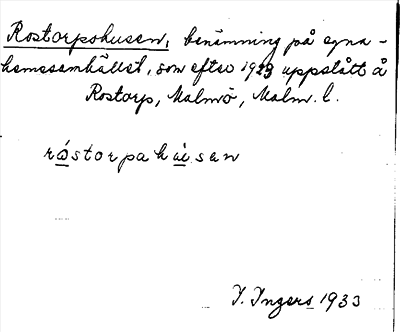 Rostorpshusen, benämning på egna-
hemssamhället, som efter 1923 uppstått å
Rostorp, Malmö, Malm. l.
I. Ingers 1933